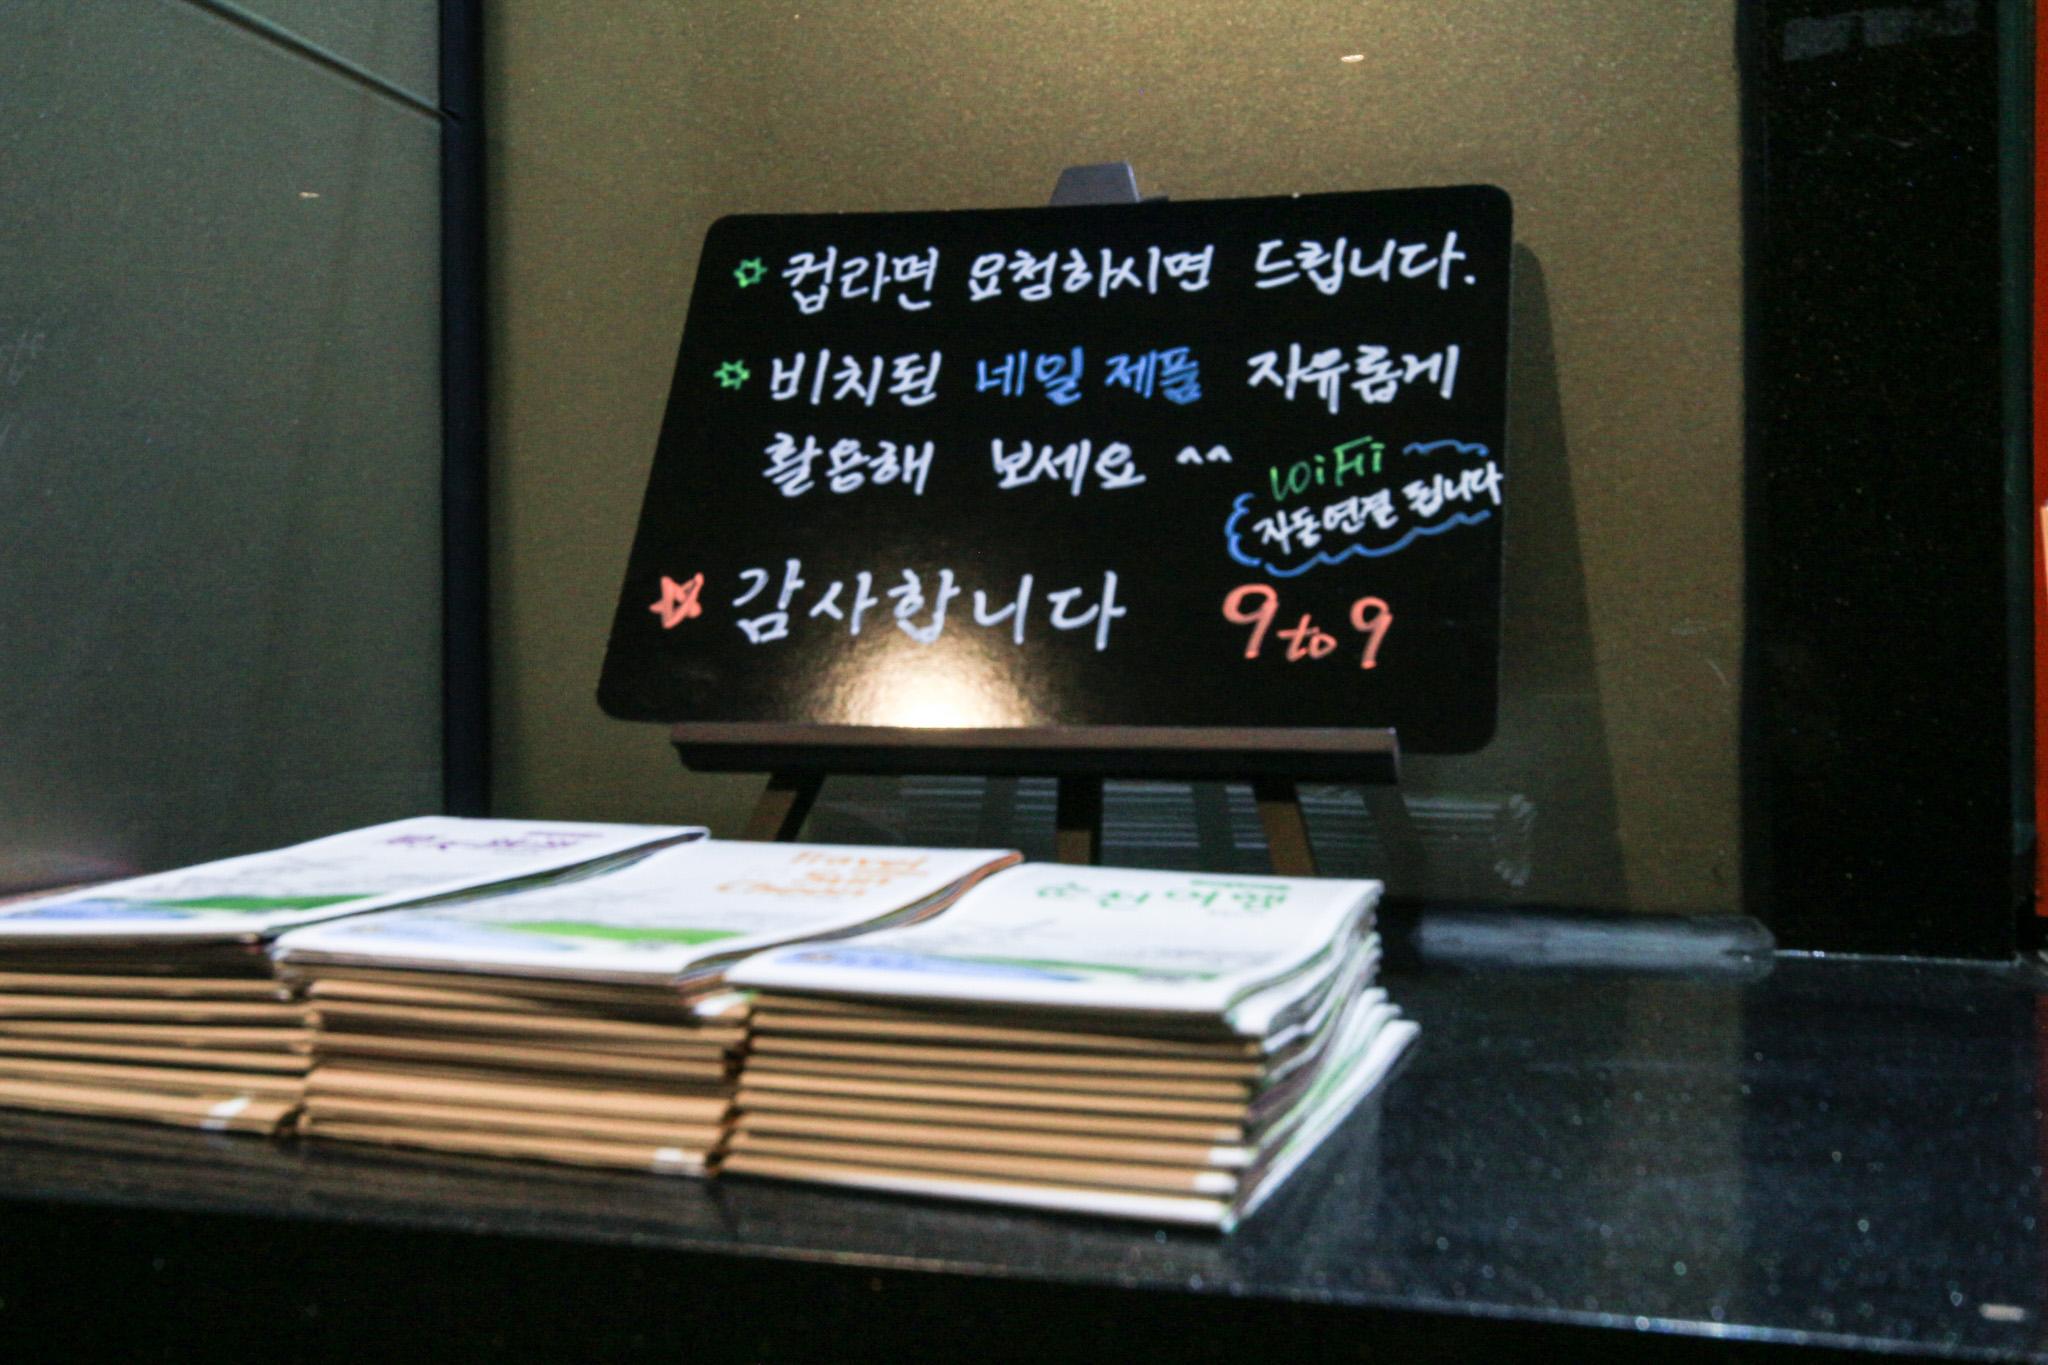 컵라면 요청하시면 드립니다.
비치된 네일 제품 자유롭게
활용해 보세요 ^^
WiFi
자동연결 됩니다
감사합니다
9 to 9
Travel
순천여행